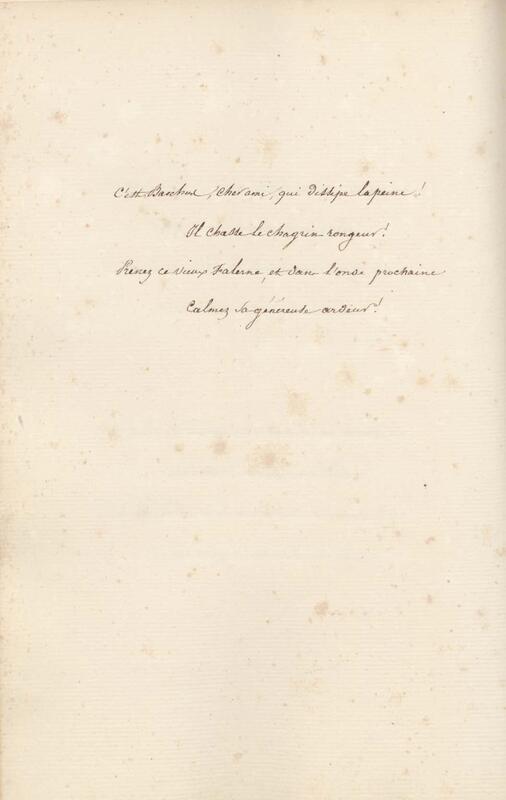 C'est Bacchus, cher ami, qui dissipe la peine!
Il chasse le chagrin rongeur!
Prenez ce vieux Falerne, et dans l'onde prochaine
Calmez sa généreuse ardeur!